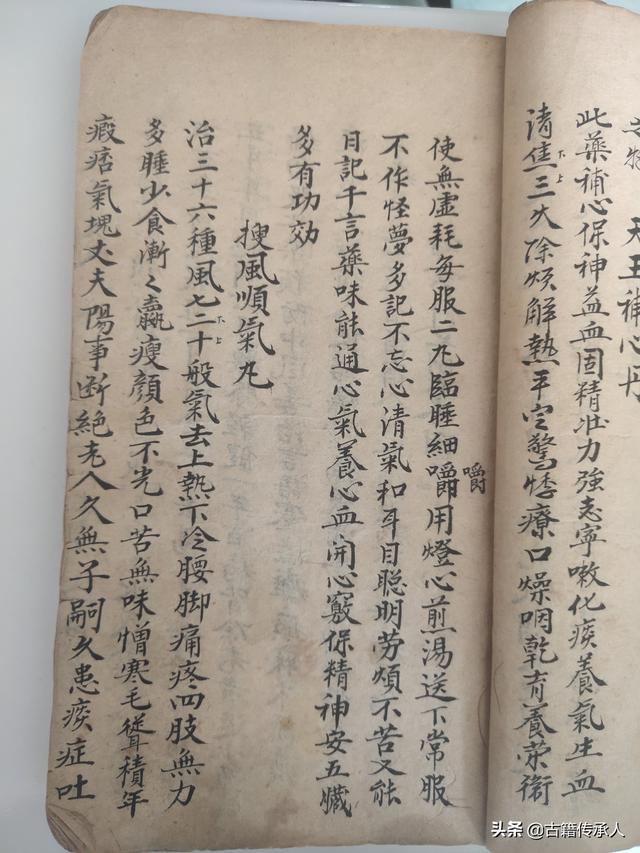 天王補心丹
此藥補心保神益血固精壯力強志寧嗽化痰養氣生血
清焦下三上火除煩解熱平定驚悸療口燥咽乾育養榮衞
使無虛耗每服二丸臨睡細嚼嚼用燈心煎湯送下常服
不作怪夢多記不忘心清氣和耳目聰明劳煩不苦又能
日記千言藥味能通心氣養心血開心竅保精神安五臟
多有功効
搜風順氣丸
治三十六種風七二下十上般氣去上熱下冷腰脚痛疼四肢無力
多睡少食漸々羸瘦顏色不光口苦無味憎寒毛聳積年
瘕痞氣塊丈夫陽事断絕老人久無子嗣久患痰症吐
头条 @古籍传承人